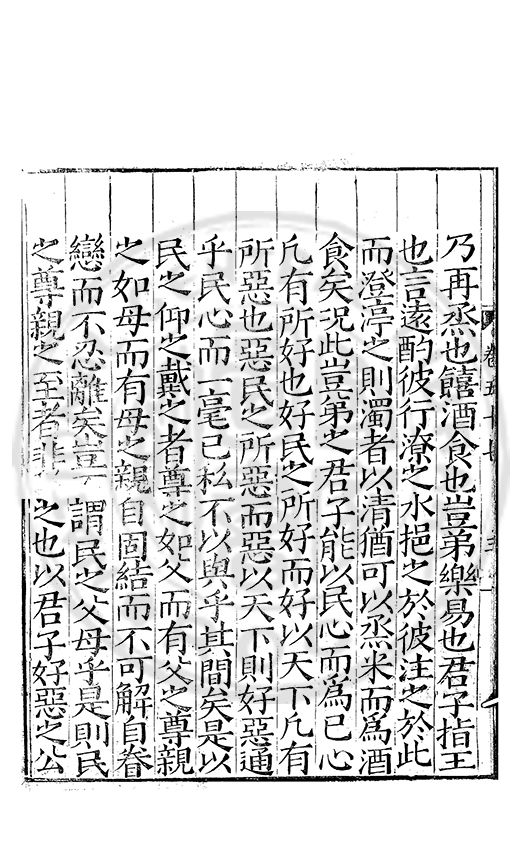 乃再烝也饎酒食也豈弟樂易也君子指王
也言遠酌彼行潦之水挹之於彼注之於此
而澄渟之則濁者以清猶可以烝米而爲酒
食矣况此豈弟之君子能以民心而爲已心
凢有所好也好民之所好而好以天下凢有
所惡也惡民之所惡而惡以天下則好惡通
乎民心而一毫已私不以與乎其間矣是以
民之仰之戴之者尊之如父而有父之尊親
之如母而有母之親自固結而不可解自眷
戀而不忍離矣豈 謂民之父母乎是則民
之尊親之至者非 之也以君子好惡之公
卷五十七